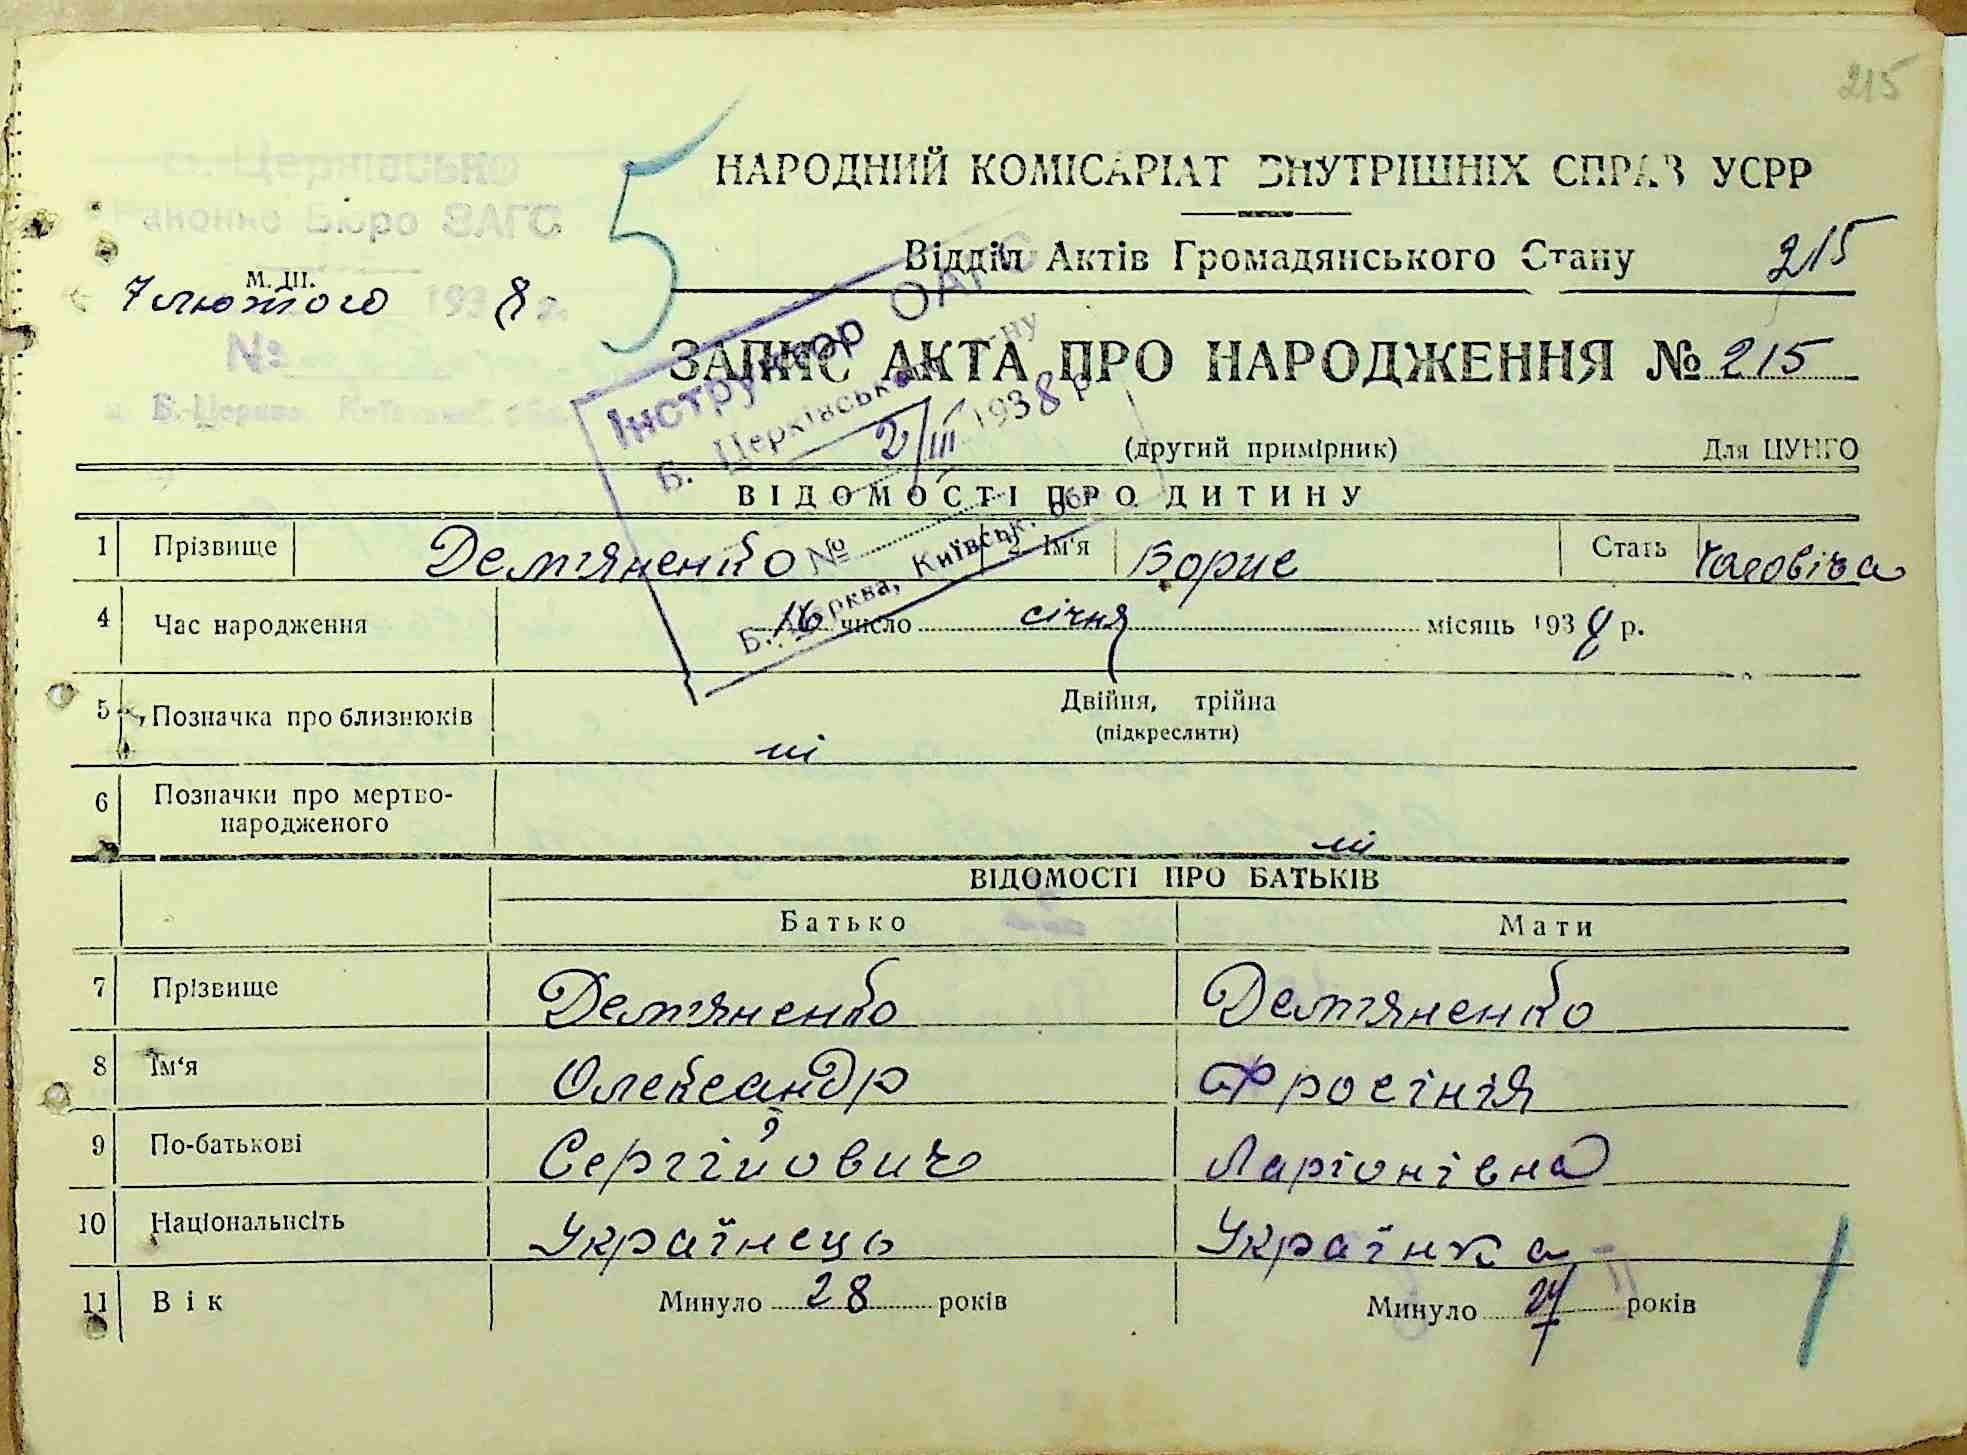 215
Б. Церківське
Районне Бюро ЗАГС
М. Ш.
7 лютого 1938 р.
№
м. Б-Церква Київської обл.
5
НАРОДНИЙ КОМІСАРІАТ ВНУТРІШНІХ СПРАВ УСРР
Відділ Актів Громадянського Стану 215
ЗАПИС АКТА ПРО НАРОДЖЕННЯ № 215
(другий примірник) Для ЦУНГО
Інструктор ОАГС
Б. Церківськ
2/III 1938 р
№
Б. Церква, Київськ. об.
ВІДОМОСТІ ПРО ДИТИНУ
1 Прізвище Дем'яненко 2 Ім'я Борис Стать Чоловіча
4 Час народження 16 число січня місяць 1938 р.
5 Позначка про близнюків Двійня, трійна
(підкреслити)
ні
6 Позначки про мертво-
народженого
ні
ВІДОМОСТІ ПРО БАТЬКІВ
Батько Мати
7 Прізвище Дем'яненко Дем'яненко
8 Ім'я Олександр Фросінія
9 По-батькові Сергійович Ларіонівна
10 Націонаьнсіть Українець Українка
11 Вік Минуло 28 років Минуло 24 років